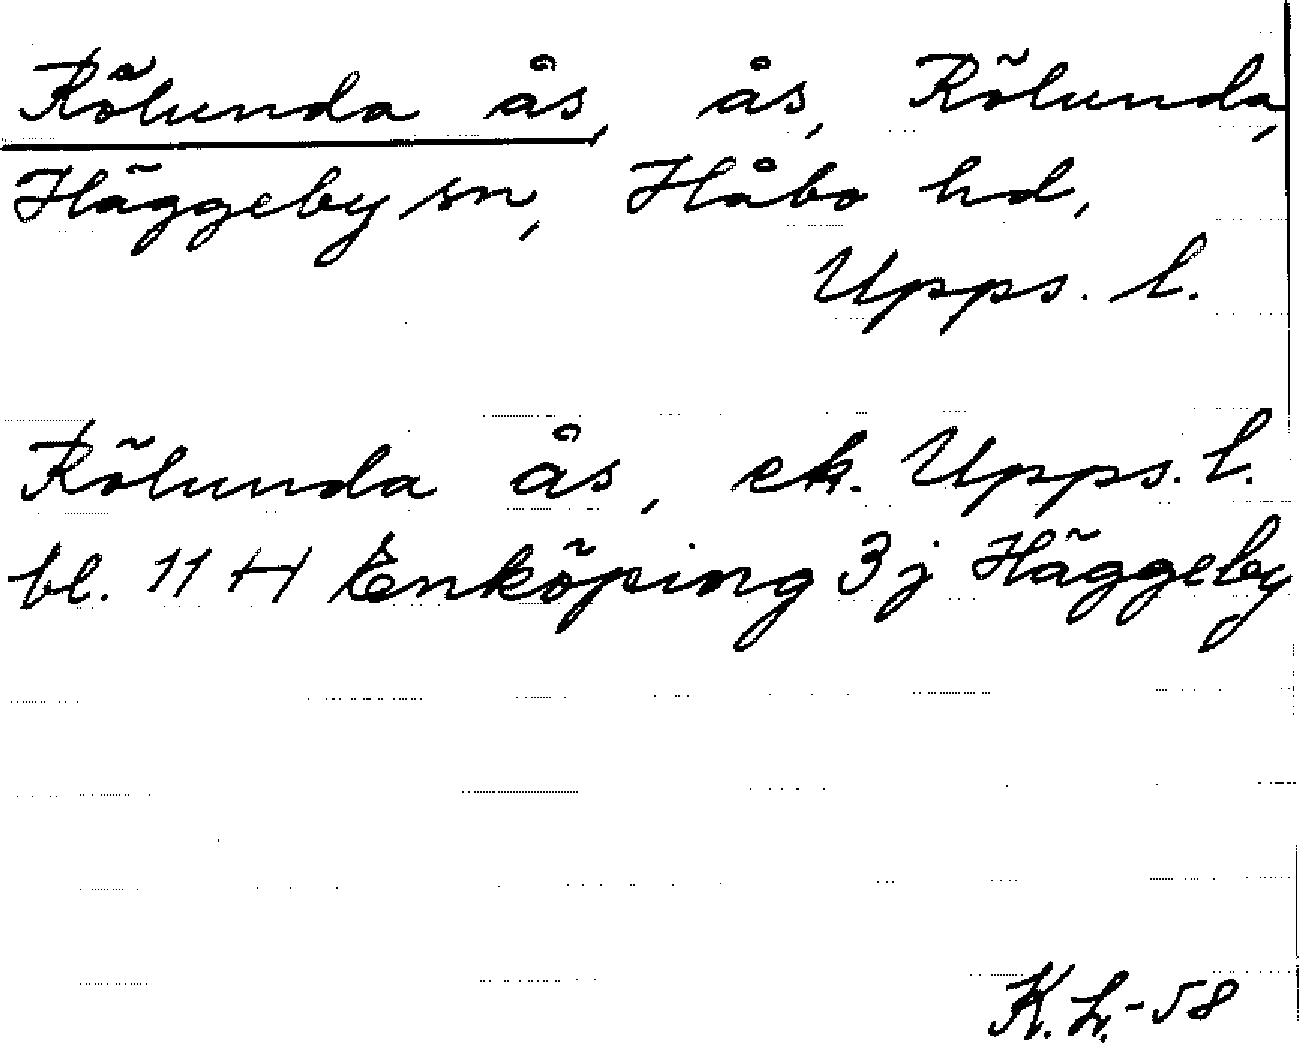 Rölunda ås, ås, Rölunda,
Häggeby sn, Håbo hd,
Upps. l.
Rölunda ås, ek. Upps. l.
bl. 11 H Enköping 3 j Häggeby
K. L. -58